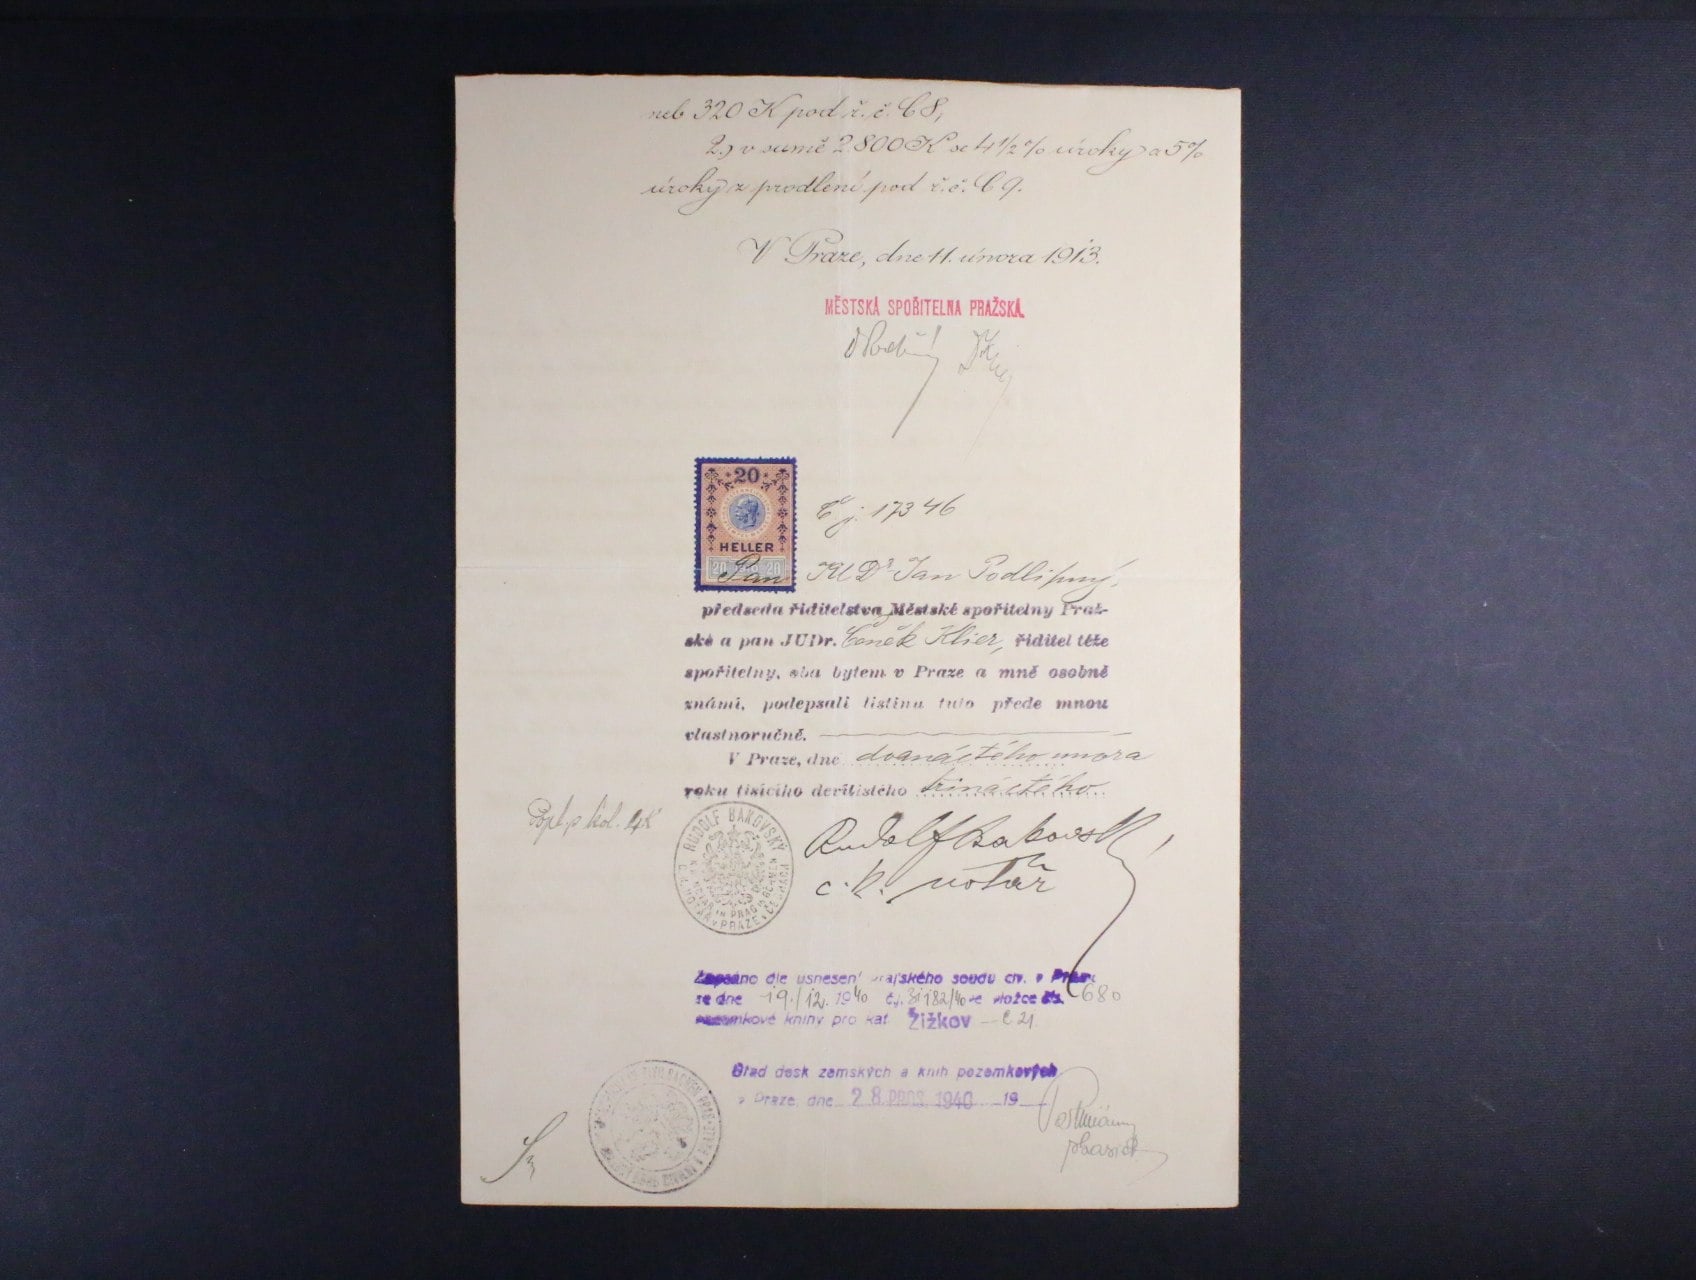 neb 320 K pod ř. č. C 8,
2.) v sumě 2.800 K se 4 1/2 % úroky a 5%
úroky z prodlení pod ř. č. C 9.
V Praze, dne 11. února 1913.
MĚSTSKÁ SPOŘITELNA PRAŽSKÁ.
20
HELLER
Č j. 17346
Pan JUDr Jan Podlipný,
předseda řiditelstva Městské spořitelny Praž-
ské a pan JUDr. Čeněk Klier, řiditel téže
spořitelny, oba bytem v Praze a mně osobně
známi, podepsali listinu tuto přede mnou
vlastnoručně.
V Praze, dne dvanáctého února
roku tisícího devítistého třináctého.
RUDOLF BAKOVSKÝ
IN PRAG
V PRAZE
Rudolf Bakovský
c. k. notář
Zapsáno dle usnesení pražského soudu civ. v Praze
ze dne 19./12. 1940 č.j. 31182/40 ve vložce čís. 680
pozemkové knihy pro kat. Žižkov - C 21
Úřad desk zemských a knih pozemkových
v Praze, dne 28. PROS. 1940 19